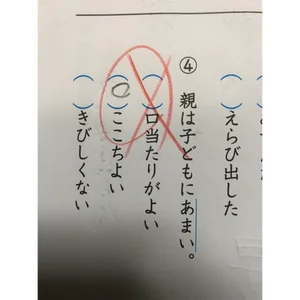 ( )えらび出した
④ 親は子どもにあまい。
( )口当たりがよい
(○)ここちよい
( )きびしくない